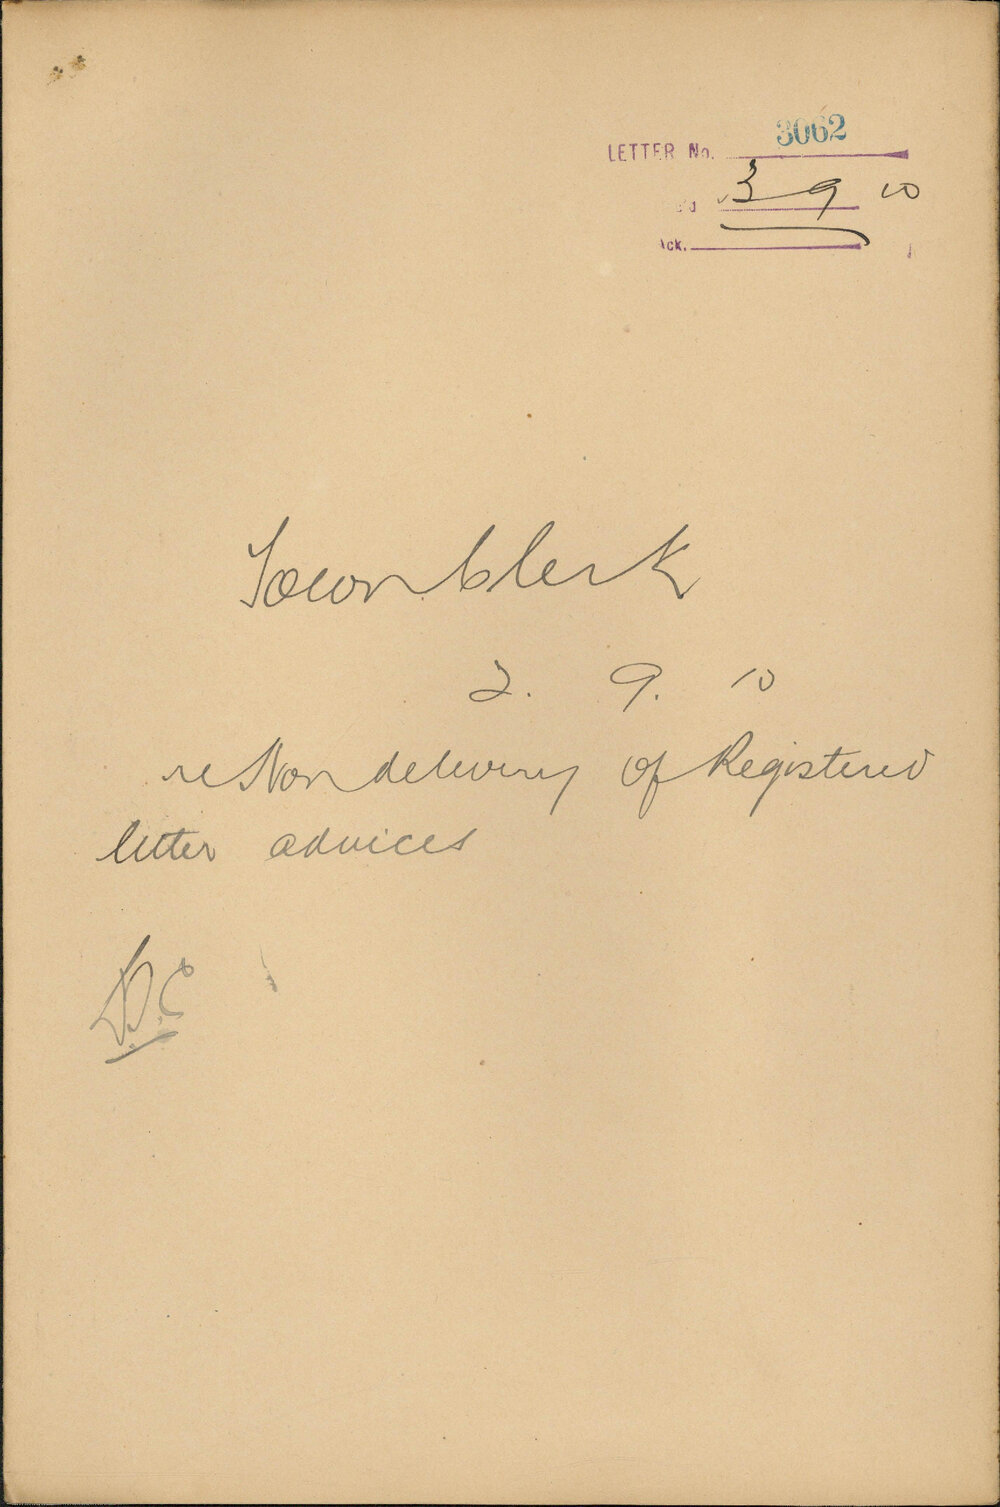 LETTER No. 3062
3 9 10
Ack.
Town Clerk
2. 9. 10
re Non delivery of Registered
letter advices